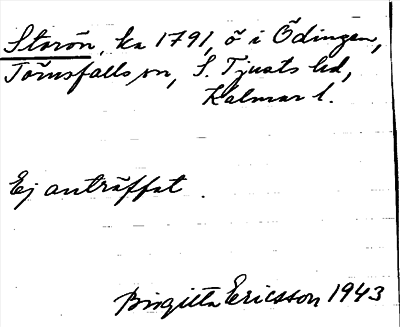 Storön, ka 1791, ö i Ödingen,
Törnsfalls sn, S. Tjusts hd,
Kalmar l.
Ej anträffat.
Birgitta Ericsson 1943